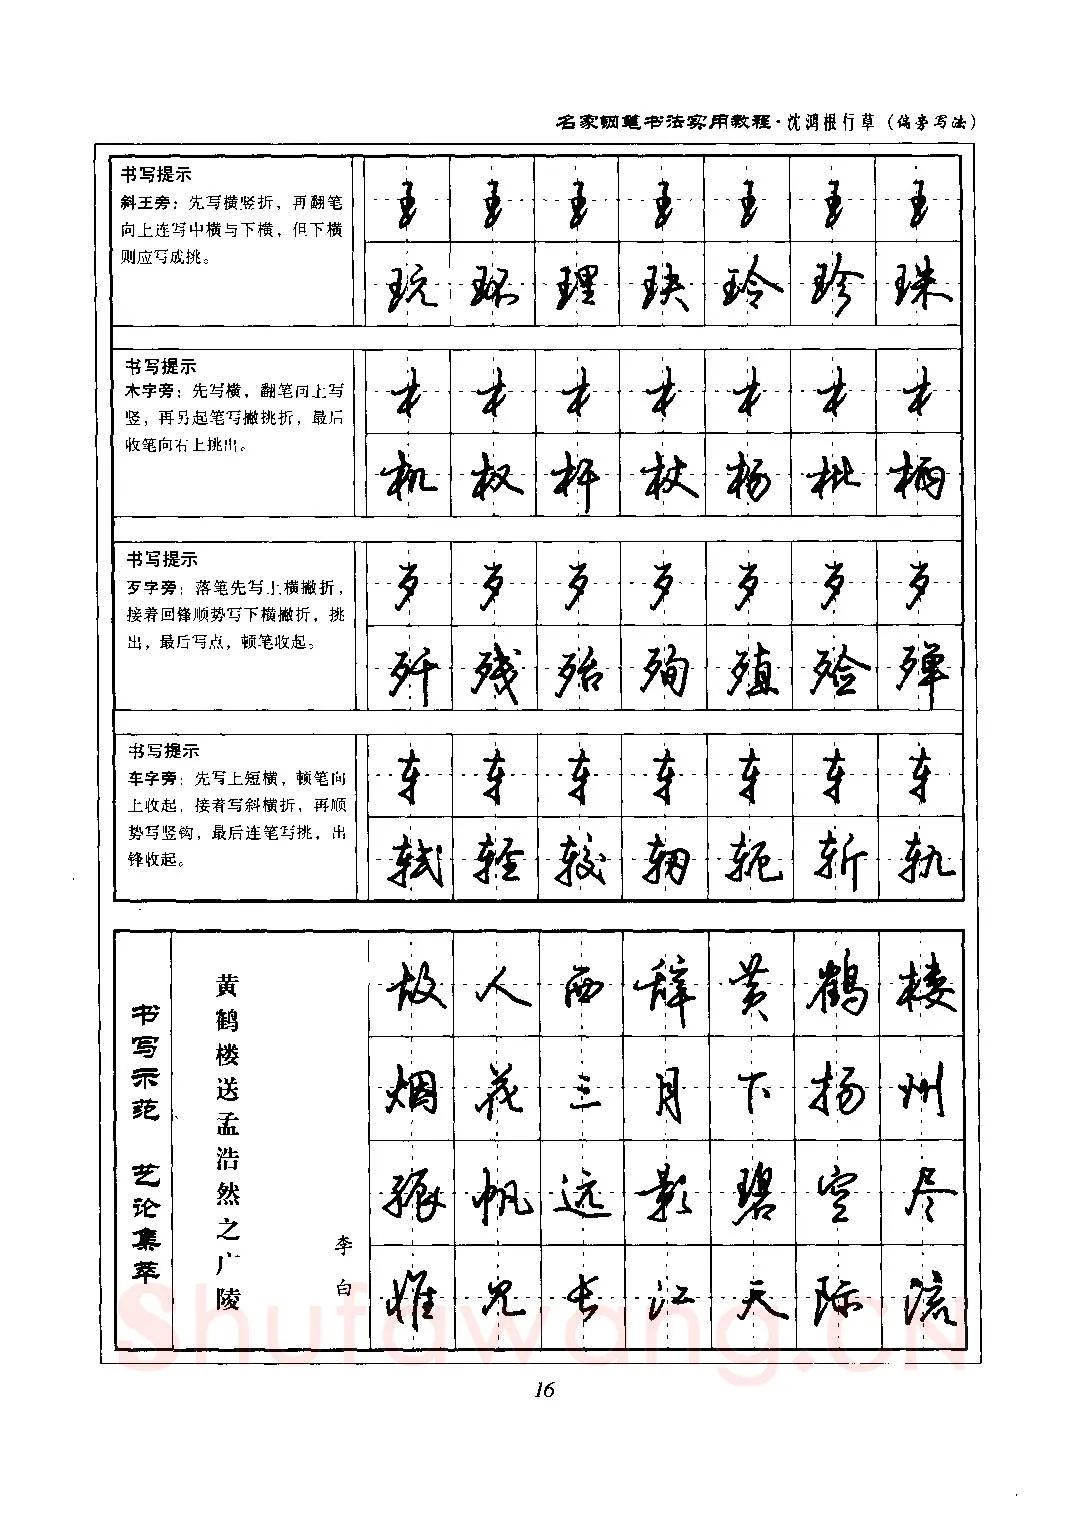 名家钢笔书法实用教程·沈鸿根行草（偏旁写法）
书写提示
斜王旁：先写横竖折，再翻笔
向上连写中横与下横，但下横
则应写成挑。
王 王 王 王 王 王 王
玩 环 理 玦 玲 珍 珠
书写提示
木字旁：先写横，翻笔向上写
竖，再另起笔写撇挑折，最后
收笔向右上挑出。
木 木 木 木 木 木 木
机 权 杆 杖 杨 枇 柄
书写提示
歹字旁：落笔先写上横撇折，
接着回锋顺势写下横撇折，挑
出，最后写点，顿笔收起。
歹 歹 歹 歹 歹 歹 歹
歼 残 殆 殉 殖 殓 殚
书写提示
车字旁：先写上短横，顿笔向
上收起，接着写斜横折，再顺
势写竖钩，最后连笔写挑，出
锋收起。
车 车 车 车 车 车 车
轼 轻 较 轫 轭 斩 轨
书写示范 艺论集萃
黄鹤楼送孟浩然之广陵
李白
故人西辞黄鹤楼
烟花三月下扬州
孤帆远影碧空尽
惟见长江天际流
Shufawang.CN
16